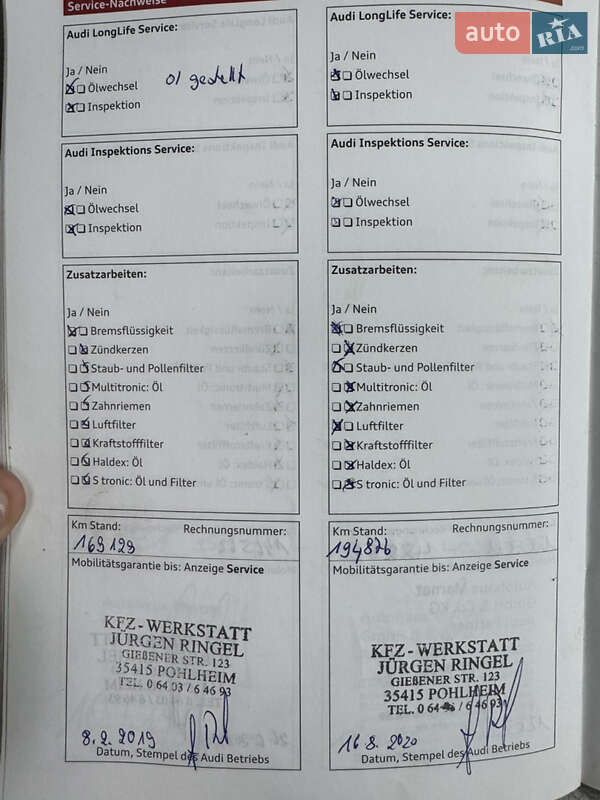 Service-Nachweise
auto RIA.com
Audi LongLife Service:
Ja / Nein
Ölwechsel
Inspektion
Öl gestellt
Audi Inspektions Service:
Ja / Nein
Ölwechsel
Inspektion
Zusatzarbeiten:
Ja / Nein
Bremsflüssigkeit
Zündkerzen
Staub- und Pollenfilter
Multitronic: Öl
Zahnriemen
Luftfilter
Kraftstofffilter
Haldex: Öl
S tronic: Öl und Filter
Km Stand:
Rechnungsnummer:
169 129
Mobilitätsgarantie bis: Anzeige Service
KFZ-WERKSTATT
JÜRGEN RINGEL
GIEßENER STR. 123
35415 POHLHEIM
TEL. 0 64 03 / 6 46 93
8. 2. 2019
Datum, Stempel des Audi Betriebs
Audi LongLife Service:
Ja / Nein
Ölwechsel
Inspektion
Audi Inspektions Service:
Ja / Nein
Ölwechsel
Inspektion
Zusatzarbeiten:
Ja / Nein
Bremsflüssigkeit
Zündkerzen
Staub- und Pollenfilter
Multitronic: Öl
Zahnriemen
Luftfilter
Kraftstofffilter
Haldex: Öl
S tronic: Öl und Filter
Km Stand:
Rechnungsnummer:
194876
Mobilitätsgarantie bis: Anzeige Service
KFZ-WERKSTATT
JÜRGEN RINGEL
GIEßENER STR. 123
35415 POHLHEIM
TEL. 0 64 / 6 46 93
16 8. 2020
Datum, Stempel des Audi Betriebs